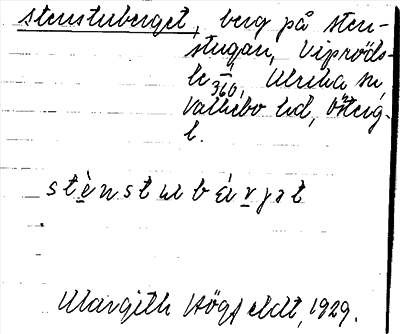 Stenstuberget, berg på Sten-
stugan, Vipröds-
le 360, Ulrika sn,
Valkebo hd, Österg-
l.
stènstubárjət
Margith Högfeldt, 1929.